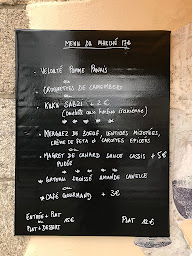 MENU DU MARCHÉ 17€
VELOUTÉ POMME PANAIS
ou
CROQUETTES DE CAMEMBERT
ou
KUKU SABZI + 2 €
(omelette aux herbes iranienne)
* * * * *
MERGUEZ DE BOEUF, LENTILLES MIJOTÉES,
CRÈME DE FETA & CAROTTES ÉPICÉES
ou
MAGRET DE CANARD SAUCE CASSIS + 5€
PURÉE
* * * * *
GATEAU AMANDE CANNELLE
ou
CAFÉ GOURMAND + 3€
ENTRÉE + PLAT
ou 15€ PLAT 12€
PLAT + DESSERT